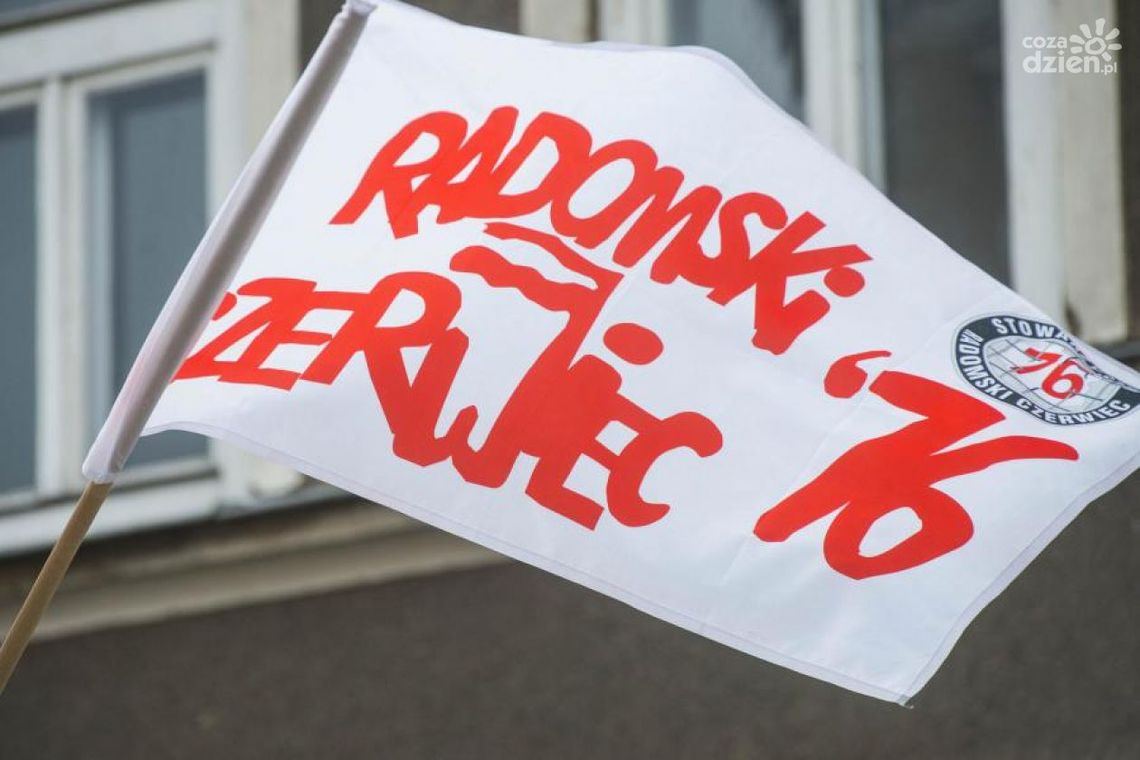 coza
dzien.pl
RADOMSKi
CZERWiEC '76
STOWA
76
RADOMSKI CZERWIEC